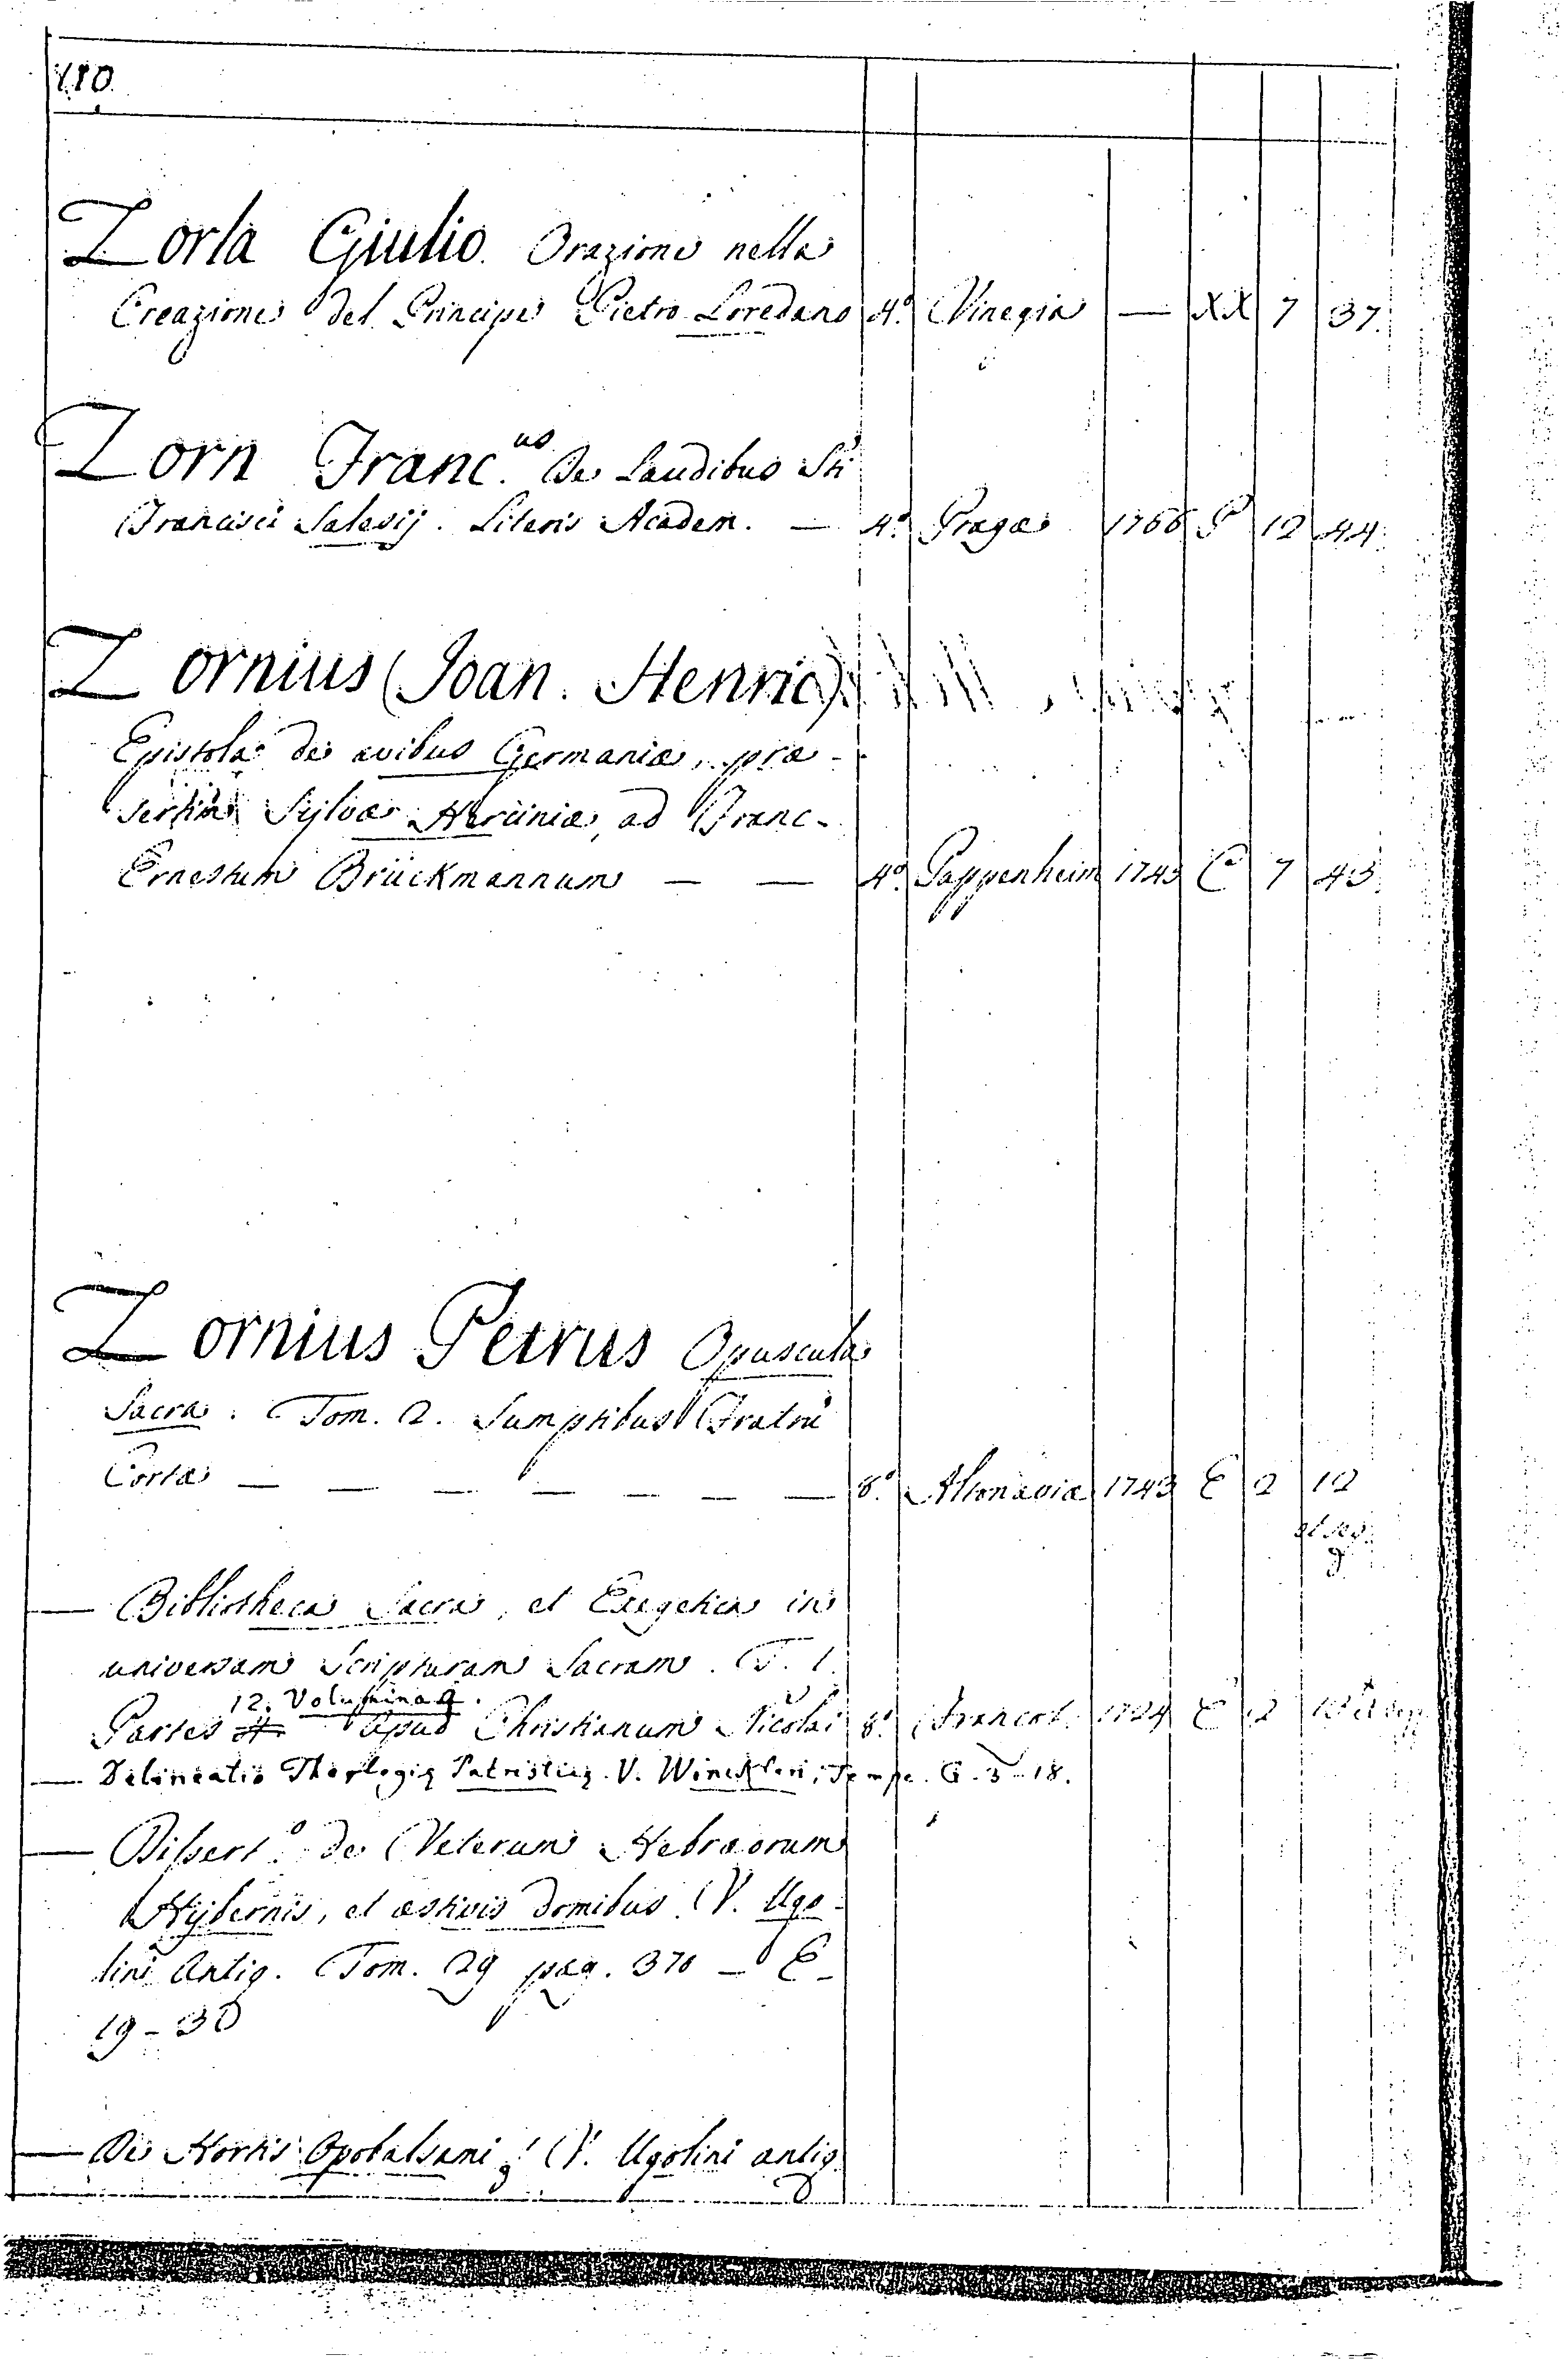 180.
Zorla Giulio. Orazione nella
Creazione del Principe Pietro Loredano 4.º Vinegia — XX 7 37.
Zorn Franc.us De Laudibus Sti
Francisci Salesij. Literis Academ. — 4.º Pragae 1766 P 12 44.
Zornius (Joan. Henric)
Epistola de avibus Germaniæ, præ-
sertim Sylvæ Hercïniæ, ad Franc-
Ernestum Brückmannum — — 4.º Pappenheim 1745 C 7 43.
Zornius Petrus Opuscula
Sacra. Tom. 2. Sumptibus Fratrũ
Cortæ — — — — — — — 8.º Altonaviæ 1743 E 2 12
et seq.
— Bibliotheca Sacra, et Exegetica in
universam Scripturam Sacram. T. 1.
12. Volumina 2.
Partes Apud Christianum Nicolai 8.º Francof. 1724 E 2
— Delineatio Theologię Patristicę. V. Winckleri, Tempe. G. 5-18.
— Dissert.o de Veterum Hebræorum
Hybernis, et æstivis domibus. V. Ugo-
lini Antiq. Tom. 29 pag. 370 — E-
19-30
— De Hortis Opobalsami V. Ugolini antiq.